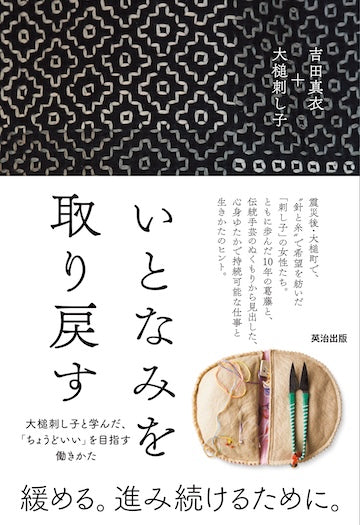 吉田真衣
＋
大槌刺し子
震災後・大槌町で、
“針と糸”で希望を紡いだ
「刺し子」の女性たち。
ともに歩んだ10年の葛藤と、
伝統手芸のぬくもりから見出した、
心身ゆたかで持続可能な仕事と
生きかたのヒント。
いとなみを
取り戻す
英治出版
大槌刺し子と学んだ、
「ちょうどいい」を目指す
働きかた
緩める。進み続けるために。